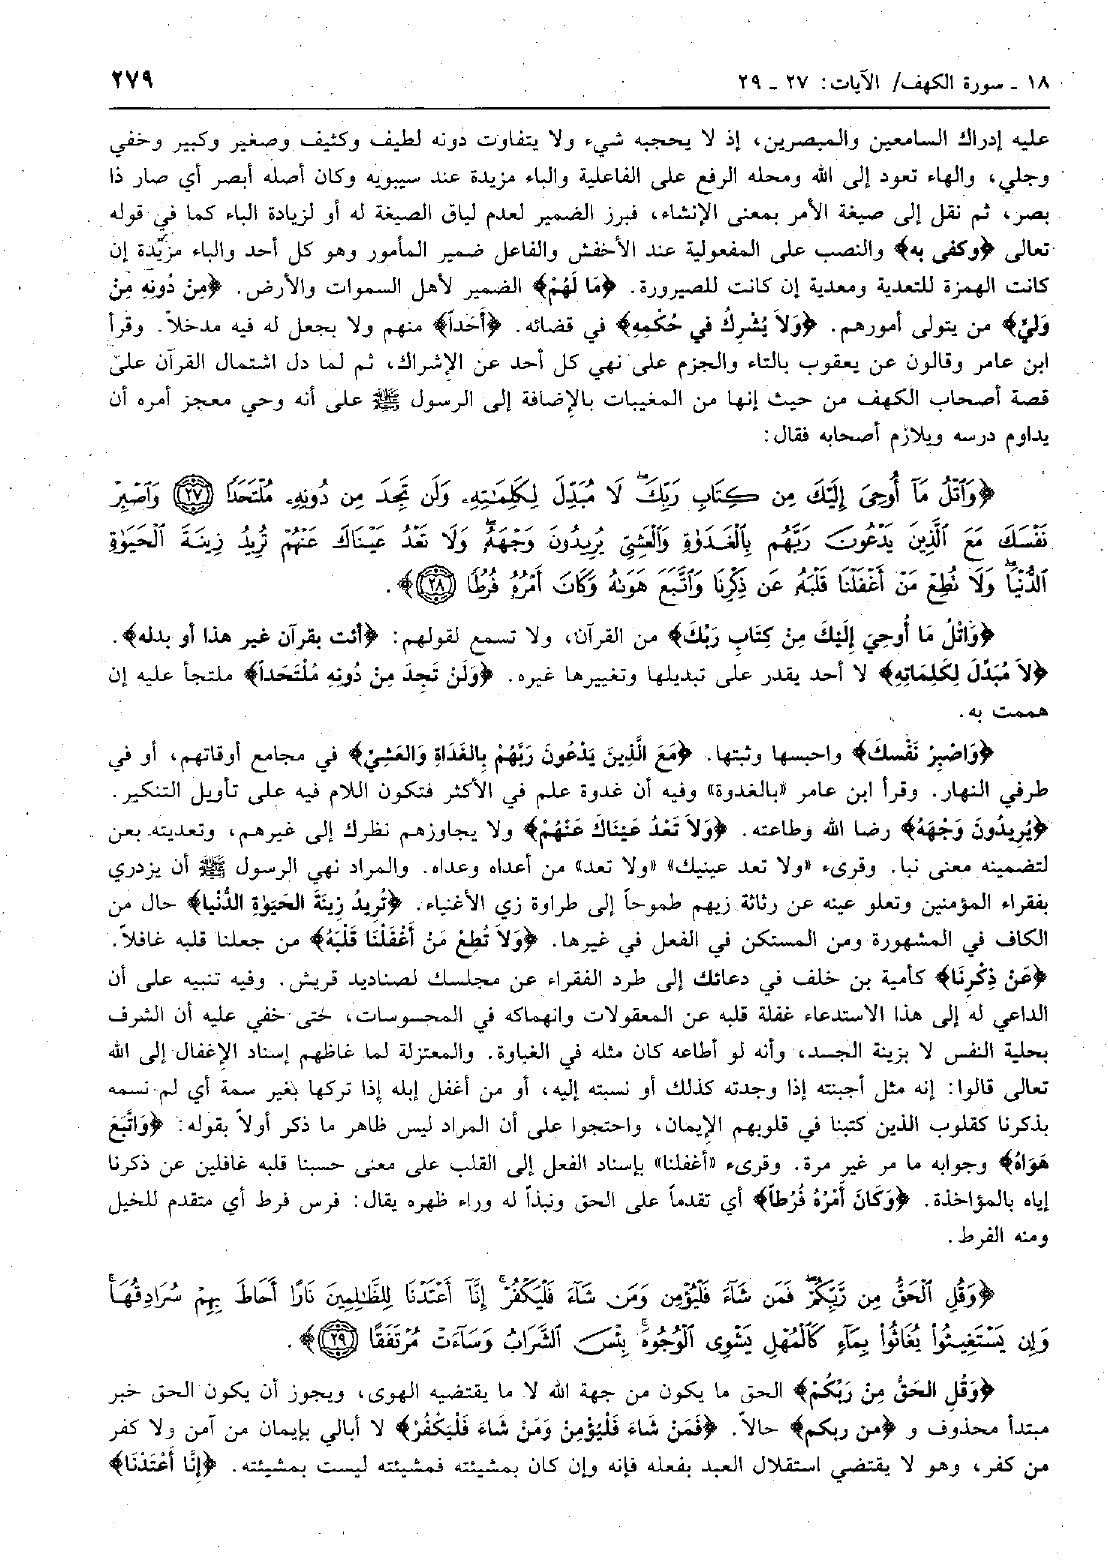 ١٨ ـ سورة الكهف/ الآيات: ٢٧ ـ ٢٩
٢٧٩
عليه إدراك السامعين والمبصرين، إذ لا يحجبه شيء ولا يتفاوت دونه لطيف وكثيف وصغير وكبير وخفي
وجلي، والهاء تعود إلى الله ومحله الرفع على الفاعلية والباء مزيدة عند سيبويه وكان أصله أبصر أي صار ذا
بصر، ثم نقل إلى صيغة الأمر بمعنى الإنشاء، فبرز الضمير لعدم لياق الصيغة له أو لزيادة الباء كما في قوله
تعالى ﴿وكفى به﴾ والنصب على المفعولية عند الأخفش والفاعل ضمير المأمور وهو كل أحد والباء مزيّدة إن
كانت الهمزة للتعدية ومعدية إن كانت للصيرورة. ﴿مَا لَهُمْ﴾ الضمير لأهل السموات والأرض. ﴿مِنْ دُونِهِ مِنْ
وَلِيٍّ﴾ من يتولى أمورهم. ﴿وَلاَ يُشْرِكُ في حُكْمِهِ﴾ في قضائه. ﴿أَحَداً﴾ منهم ولا يجعل له فيه مدخلاً. وقرأ
ابن عامر وقالون عن يعقوب بالتاء والجزم على نهي كل أحد عن الإشراك، ثم لما دل اشتمال القرآن على
قصة أصحاب الكهف من حيث إنها من المغيبات بالإضافة إلى الرسول ﷺ على أنه وحي معجز أمره أن
يداوم درسه ويلازم أصحابه فقال:
﴿وَٱتْلُ مَآ أُوحِيَ إِلَيْكَ مِن كِتَابِ رَبِّكَ ۖ لَا مُبَدِّلَ لِكَلِمَٰتِهِۦ وَلَن تَجِدَ مِن دُونِهِۦ مُلْتَحَدًا ﴿٢٧﴾ وَٱصْبِرْ
نَفْسَكَ مَعَ ٱلَّذِينَ يَدْعُونَ رَبَّهُم بِٱلْغَدَوٰةِ وَٱلْعَشِيِّ يُرِيدُونَ وَجْهَهُۥ ۖ وَلَا تَعْدُ عَيْنَاكَ عَنْهُمْ تُرِيدُ زِينَةَ ٱلْحَيَوٰةِ
ٱلدُّنْيَا ۖ وَلَا تُطِعْ مَنْ أَغْفَلْنَا قَلْبَهُۥ عَن ذِكْرِنَا وَٱتَّبَعَ هَوَىٰهُ وَكَانَ أَمْرُهُۥ فُرُطًا ﴿٢٨﴾﴾.
﴿وَاتْلُ مَا أُوحِيَ إِلَيْكَ مِنْ كِتَابِ رَبِّكَ﴾ من القرآن، ولا تسمع لقولهم: ﴿أئت بقرآن غير هذا أو بدله﴾.
﴿لاَ مُبَدِّلَ لِكَلِمَاتِهِ﴾ لا أحد يقدر على تبديلها وتغييرها غيره. ﴿وَلَنْ تَجِدَ مِنْ دُونِهِ مُلْتَحَداً﴾ ملتجأ عليه إن
هممت به.
﴿وَاصْبِرْ نَفْسَكَ﴾ واحبسها وثبتها. ﴿مَعَ الَّذِينَ يَدْعُونَ رَبَّهُمْ بِالغَدَاةِ وَالعَشِيِّ﴾ في مجامع أوقاتهم، أو في
طرفي النهار. وقرأ ابن عامر «بالغدوة» وفيه أن غدوة علم في الأكثر فتكون اللام فيه على تأويل التنكير.
﴿يُرِيدُونَ وَجْهَهُ﴾ رضا الله وطاعته. ﴿وَلاَ تَعْدُ عَيْنَاكَ عَنْهُمْ﴾ ولا يجاوزهم نظرك إلى غيرهم، وتعديته بعن
لتضمينه معنى نبا. وقرىء «ولا تعد عينيك» «ولا تعد» من أعداه وعداه. والمراد نهي الرسول ﷺ أن يزدري
بفقراء المؤمنين وتعلو عينه عن رثاثة زيهم طموحاً إلى طراوة زي الأغنياء. ﴿تُرِيدُ زِينَةَ الحَيَوٰةِ الدُّنْيا﴾ حال من
الكاف في المشهورة ومن المستكن في الفعل في غيرها. ﴿وَلاَ تُطِعْ مَنْ أَغْفَلْنَا قَلْبَهُ﴾ من جعلنا قلبه غافلاً.
﴿عَنْ ذِكْرِنَا﴾ كأمية بن خلف في دعائك إلى طرد الفقراء عن مجلسك لصناديد قريش. وفيه تنبيه على أن
الداعي له إلى هذا الاستدعاء غفلة قلبه عن المعقولات وانهماكه في المحسوسات، حتى خفي عليه أن الشرف
بحلية النفس لا بزينة الجسد، وأنه لو أطاعه كان مثله في الغباوة. والمعتزلة لما غاظهم إسناد الإغفال إلى الله
تعالى قالوا: إنه مثل أجبنته إذا وجدته كذلك أو نسبته إليه، أو من أغفل إبله إذا تركها بغير سمة أي لم نسمه
بذكرنا كقلوب الذين كتبنا في قلوبهم الإِيمان، واحتجوا على أن المراد ليس ظاهر ما ذكر أولاً بقوله: ﴿وَاتَّبَعَ
هَوَاهُ﴾ وجوابه ما مر غير مرة. وقرىء «أغفلنا» بإسناد الفعل إلى القلب على معنى حسبنا قلبه غافلين عن ذكرنا
إياه بالمؤاخذة. ﴿وَكَانَ أَمْرُهُ فُرُطاً﴾ أي تقدماً على الحق ونبذاً له وراء ظهره يقال: فرس فرط أي متقدم للخيل
ومنه الفرط.
﴿وَقُلِ ٱلْحَقُّ مِن رَّبِّكُمْ ۖ فَمَن شَآءَ فَلْيُؤْمِن وَمَن شَآءَ فَلْيَكْفُرْ ۚ إِنَّآ أَعْتَدْنَا لِلظَّٰلِمِينَ نَارًا أَحَاطَ بِهِمْ سُرَادِقُهَا ۚ
وَإِن يَسْتَغِيثُوا۟ يُغَاثُوا۟ بِمَآءٍ كَٱلْمُهْلِ يَشْوِى ٱلْوُجُوهَ ۚ بِئْسَ ٱلشَّرَابُ وَسَآءَتْ مُرْتَفَقًا ﴿٢٩﴾﴾.
﴿وَقُلِ الحَقُّ مِنْ رَبِّكُمْ﴾ الحق ما يكون من جهة الله لا ما يقتضيه الهوى، ويجوز أن يكون الحق خبر
مبتدأ محذوف و ﴿من ربكم﴾ حالاً. ﴿فَمَنْ شَاءَ فَلْيُؤْمِنْ وَمَنْ شَاءَ فَلْيَكْفُرْ﴾ لا أبالي بإيمان من آمن ولا كفر
من كفر، وهو لا يقتضي استقلال العبد بفعله فإنه وإن كان بمشيئته فمشيئته ليست بمشيئته. ﴿إِنَّا أَعْتَدْنَا﴾